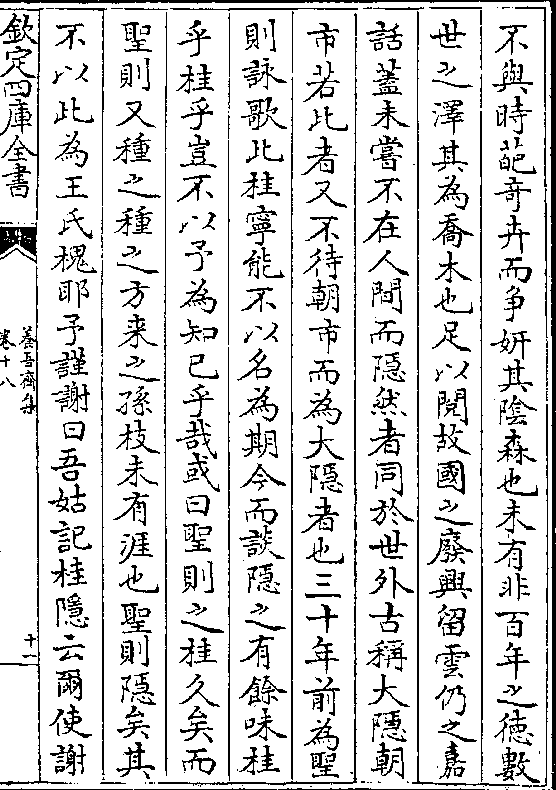 不與時葩奇卉而争妍其陰森也未有非百年之徳數
世之澤其為喬木也足以閱故國之廢興留雲仍之嘉
話蓋未嘗不在人間而隠然者同於世外古稱大隠朝
市若此者又不待朝市而為大隠者也三十年前為聖
則詠歌此桂寧能不以名為期今而談隠之有餘味桂
乎桂乎豈不以予為知已乎哉或曰聖則之桂久矣而
聖則又種之種之方来之孫枝未有涯也聖則隠矣其
不以此為王氏槐耶予謹謝曰吾姑記桂隠云爾使謝
欽定四庫全書
養吾齋集
卷十八
十一